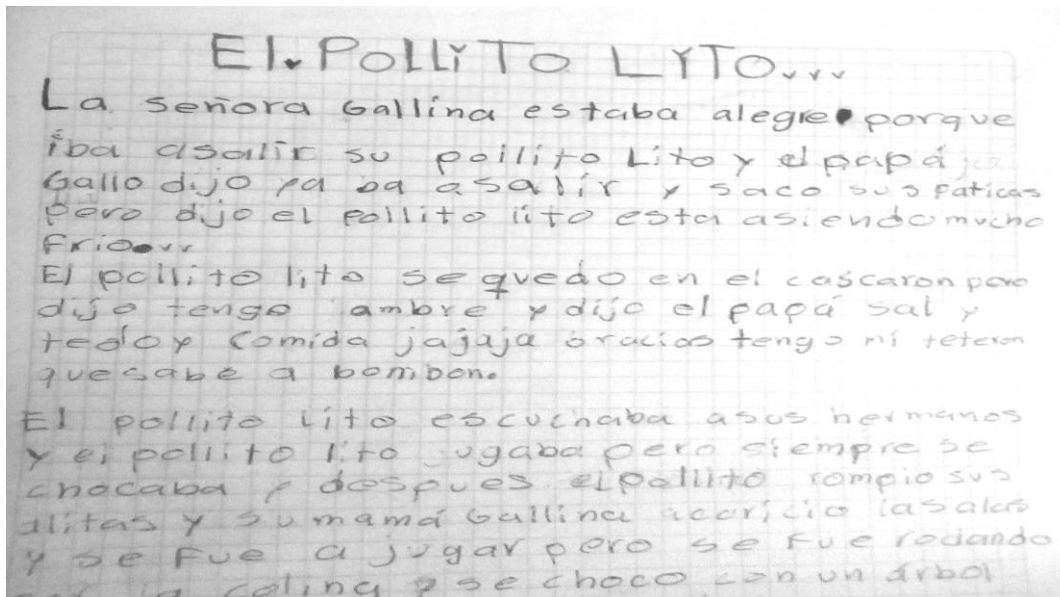 El. POLLiTO LYTO...
La señora Gallina estaba alegre porque
iba asalir su pollito Lito y el papá
Gallo dijo ya ba asalir y saco sus Paticas
pero dijo el Pollito lito esta asiendo mucho
Frio...
El pollito lito se quedo en el cascaron pero
dijo tengo ambre y dijo el papá sal y
tedoy comida jajaja Gracias tengo mi teteron
que sabe a bombon.
El pollito Lito escuchaba asus hermanos
y el pollito lito jugaba pero siempre se
chocaba y despues elpollito rompio sus
alitas y su mamá Gallina acaricio lasalas
y se Fue a jugar pero se Fue rodando
por la colina y se choco con un árbol